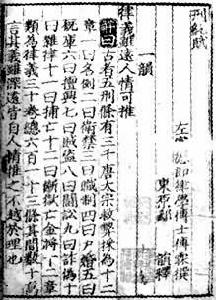 刑統賦
左宣德郎律學博士傅霖撰
東原郄 韻釋
一韻
律義雖遠人情可推
解曰古者五刑條有三千唐太宗敕 採為十二
章一曰名例二曰衛禁三曰職制四曰戶婚五曰
廐庫六曰擅興七曰賊盜八曰鬪訟九曰詐偽十
曰雜律十一曰捕亡十二曰斷獄亡金將十二章
類為律義三十卷總六百一十三條其間數十萬
言其義雖深遠皆自人情推之不越於理也